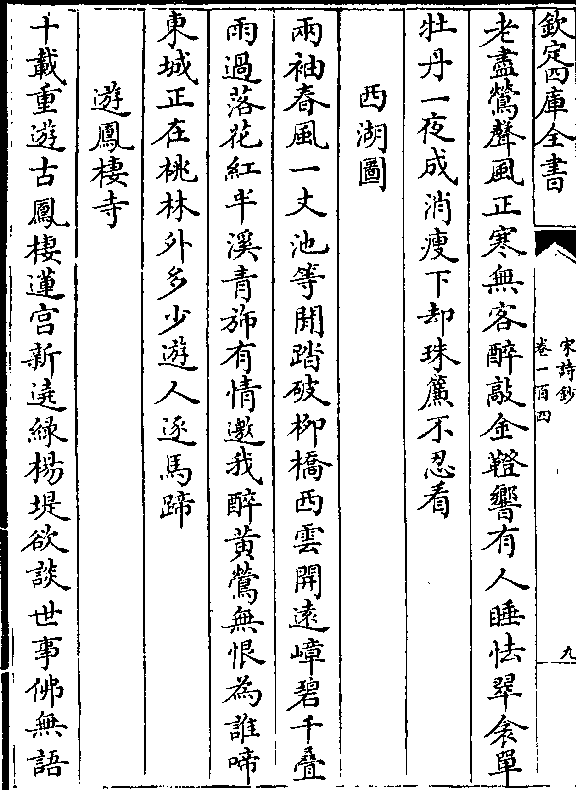 欽定四庫全書
宋詩鈔
卷一百四
九
老盡鶯聲風正寒無客醉敲金鐙響有人睡怯翠衾單
牡丹一夜成消瘦下却珠簾不忍看
西湖圖
兩袖春風一丈池等閒踏破柳橋西雲開遠嶂碧千疊
雨過落花紅半溪青斾有情邀我醉黄鶯無恨為誰啼
東城正在桃林外多少遊人逐馬蹄
遊鳳棲寺
十載重遊古鳳棲蓮宫新遶緑楊堤欲談世事佛無語